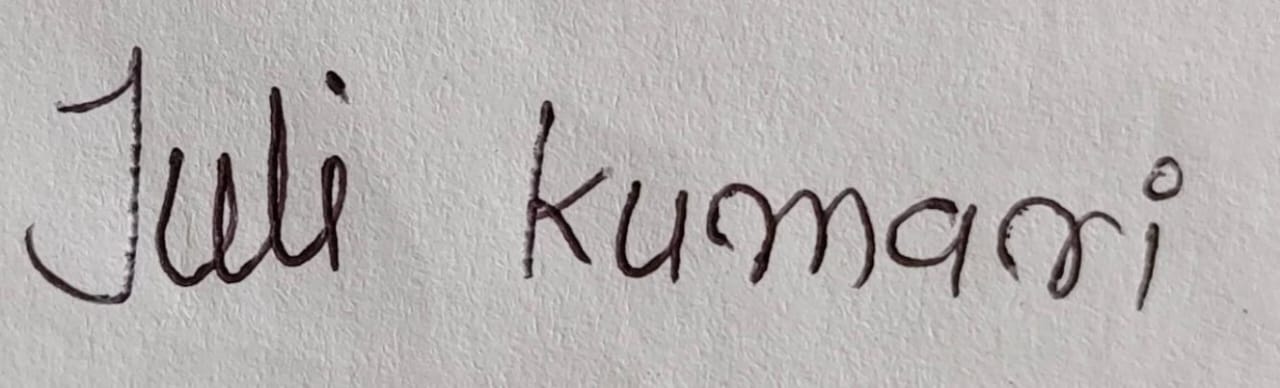 Juli kumari